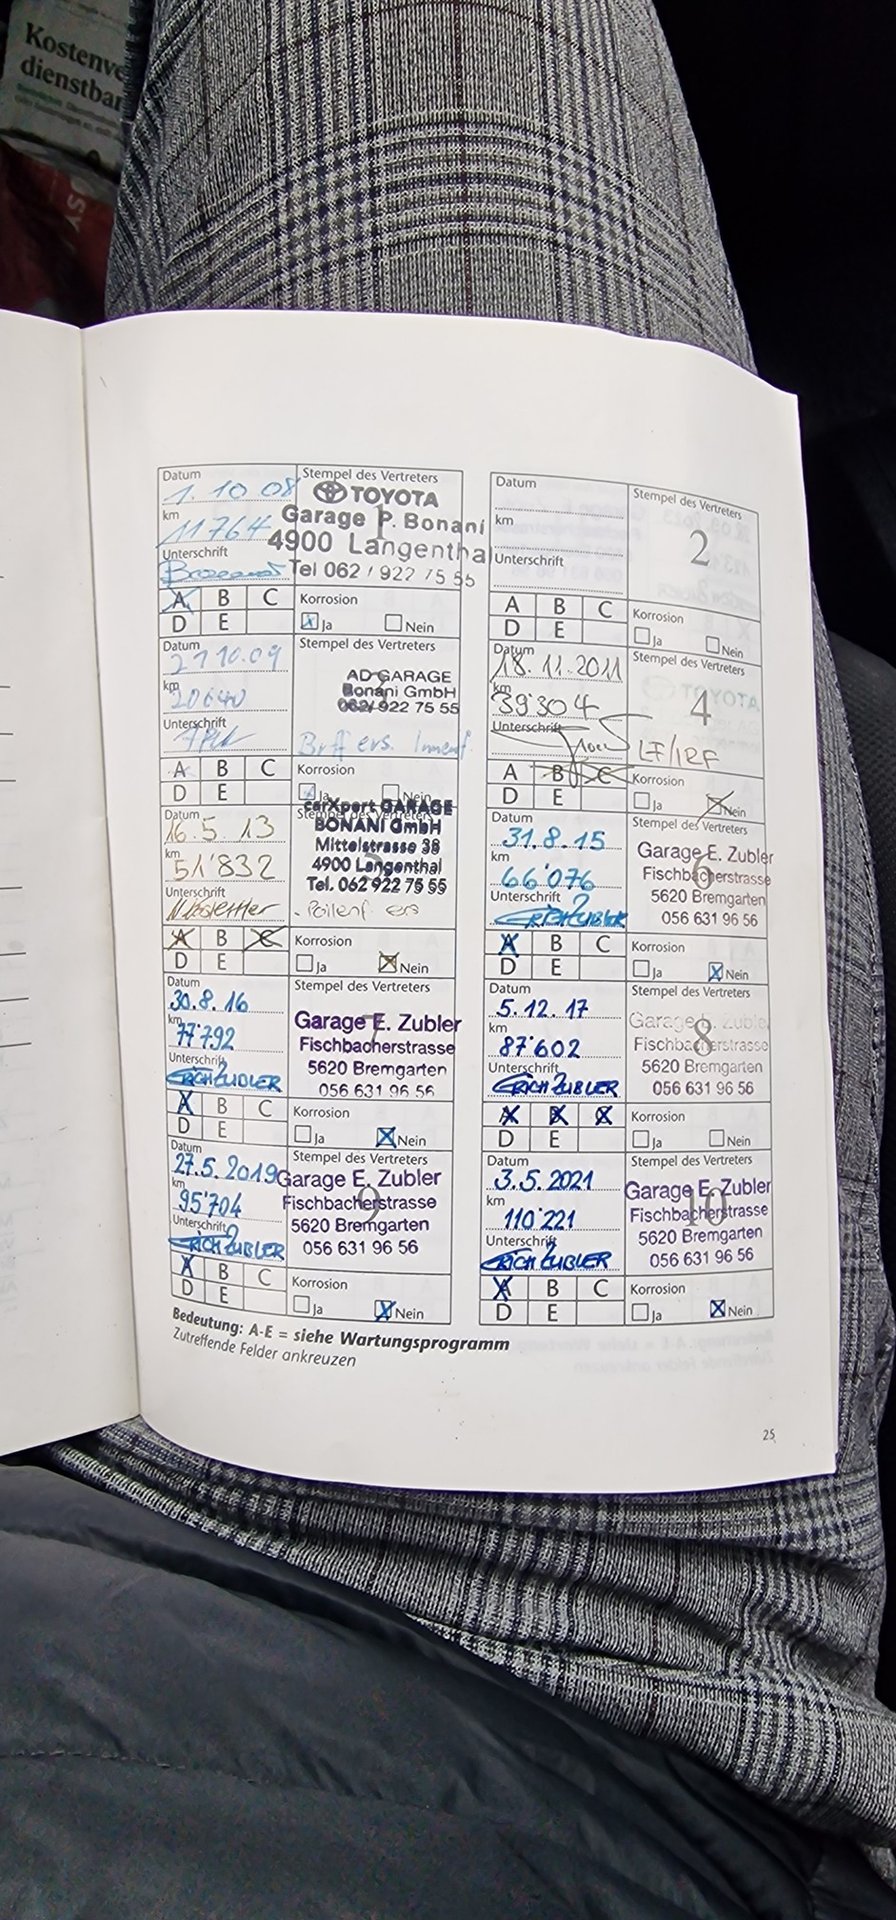 Kostenve
dienstbar
Datum
1. 10 08
km
11764
Unterschrift
Stempel des Vertreters
TOYOTA
Garage P. Bonani
4900 Langenthal
Tel 062 / 922 75 55
1
A B C
D E
Korrosion
Ja Nein
Datum
km
Unterschrift
Stempel des Vertreters
2
A B C
D E
Korrosion
Ja Nein
Datum
21 10.09
km
20640
Unterschrift
Stempel des Vertreters
AD GARAGE
Bonani GmbH
062/ 922 75 55
A B C
D E
Korrosion
Ja Nein
Datum
18.11.2011
km
39'304
Unterschrift
Stempel des Vertreters
4
A B C
D E
Korrosion
Ja Nein
Datum
16.5.13
km
51'832
Unterschrift
Stempel des Vertreters
carXpert GARAGE
BONANI GmbH
Mittelstrasse 38
4900 Langenthal
Tel. 062 922 75 55
5
A B C
D E
Korrosion
Ja Nein
Datum
31.8.15
km
66'076
Unterschrift
ERICH ZUBLER
Stempel des Vertreters
Garage E. Zubler
Fischbacherstrasse
5620 Bremgarten
056 631 96 56
6
A B C
D E
Korrosion
Ja Nein
Datum
30.8.16
km
77'792
Unterschrift
ERICH ZUBLER
Stempel des Vertreters
Garage E. Zubler
Fischbacherstrasse
5620 Bremgarten
056 631 96 56
7
A B C
D E
Korrosion
Ja Nein
Datum
5.12.17
km
87'602
Unterschrift
ERICH ZUBLER
Stempel des Vertreters
Garage E. Zubler
Fischbacherstrasse
5620 Bremgarten
056 631 96 56
8
A B C
D E
Korrosion
Ja Nein
Datum
27.5.2019
km
95'704
Unterschrift
ERICH ZUBLER
Stempel des Vertreters
Garage E. Zubler
Fischbacherstrasse
5620 Bremgarten
056 631 96 56
9
A B C
D E
Korrosion
Ja Nein
Datum
3.5.2021
km
110'221
Unterschrift
ERICH ZUBLER
Stempel des Vertreters
Garage E. Zubler
Fischbacherstrasse
5620 Bremgarten
056 631 96 56
10
A B C
D E
Korrosion
Ja Nein
Bedeutung: A-E = siehe Wartungsprogramm
Zutreffende Felder ankreuzen
25